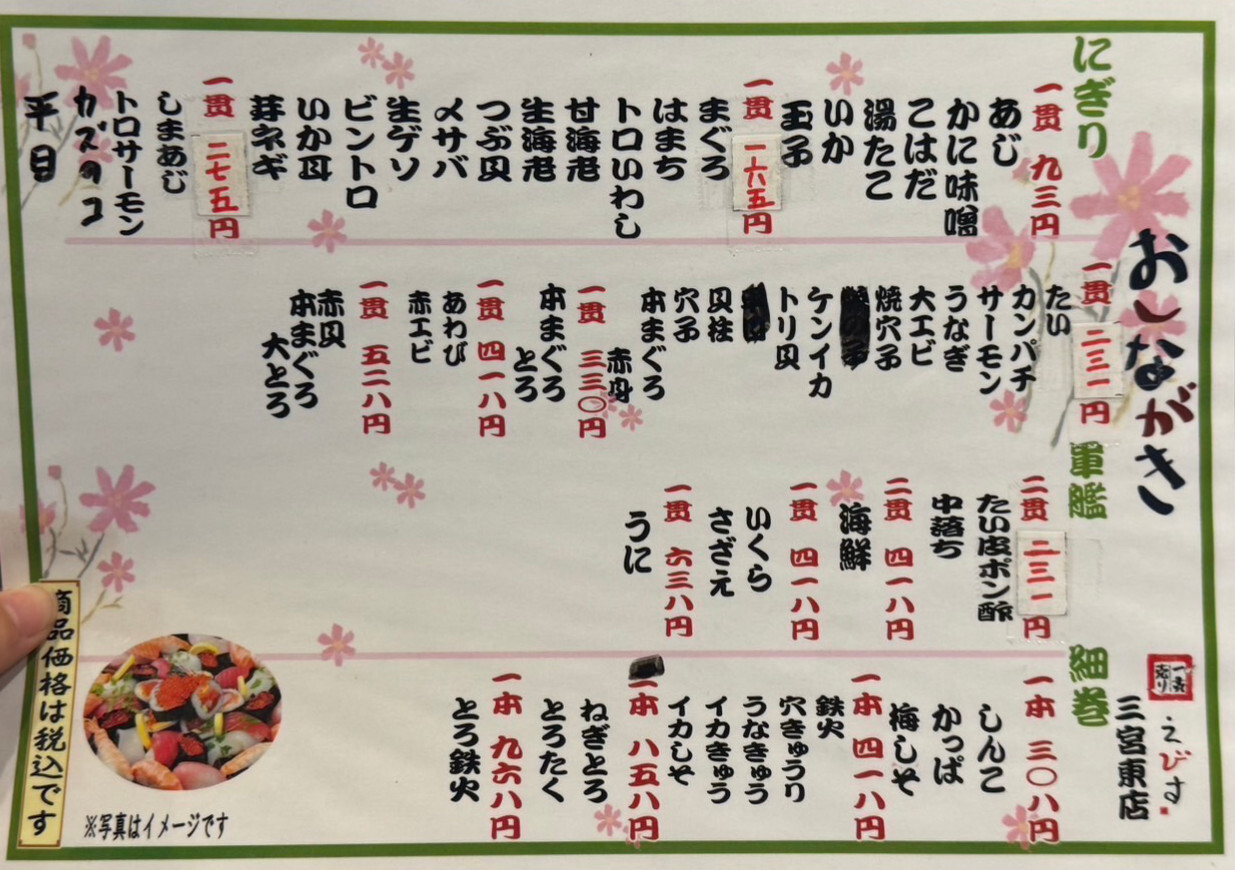 おしながき
にぎり
一貫 九三円
あじ
かに味噌
こはだ
湯たこ
いか
玉子
一貫 一六五円
まぐろ
はまち
トロいわし
甘海老
生海老
つぶ貝
〆サバ
生ゲソ
ビントロ
いか耳
芽ネギ
一貫 二七五円
しまあじ
トロサーモン
カズノコ
平目
一貫 二三一円
たい
カンパチ
サーモン
うなぎ
大エビ
焼穴子
ケンイカ
トリ貝
貝柱
穴子
本まぐろ
赤身
一貫 三三〇円
本まぐろ
とろ
一貫 四一八円
あわび
赤エビ
一貫 五二八円
赤貝
本まぐろ
大とろ
軍艦
二貫 二三一円
たい皮ポン酢
中落ち
二貫 四一八円
海鮮
一貫 四一八円
いくら
さざえ
一貫 六三八円
うに
細巻
一本 三〇八円
しんこ
かっぱ
梅しそ
一本 四一八円
鉄火
穴きゅうり
うなきゅう
イカきゅう
イカしそ
一本 八五八円
ねぎとろ
とろたく
一本 九六八円
とろ鉄火
えびす
三宮東店
※写真はイメージです
商品価格は税込です